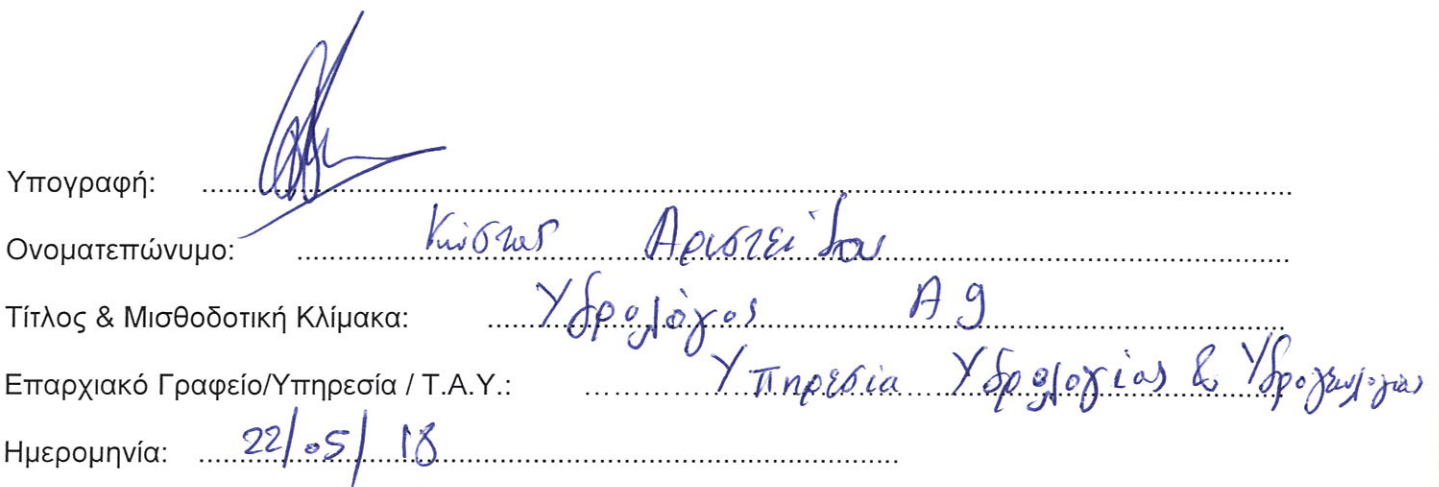 Υπογραφή:
Ονοματεπώνυμο: Κώστας Αριστείδου
Τίτλος & Μισθοδοτική Κλίμακα: Υδρολόγος Α9
Επαρχιακό Γραφείο/Υπηρεσία / Τ.Α.Υ.: Υπηρεσία Υδρολογίας & Υδρογεωλογίας
Ημερομηνία: 22/05/18